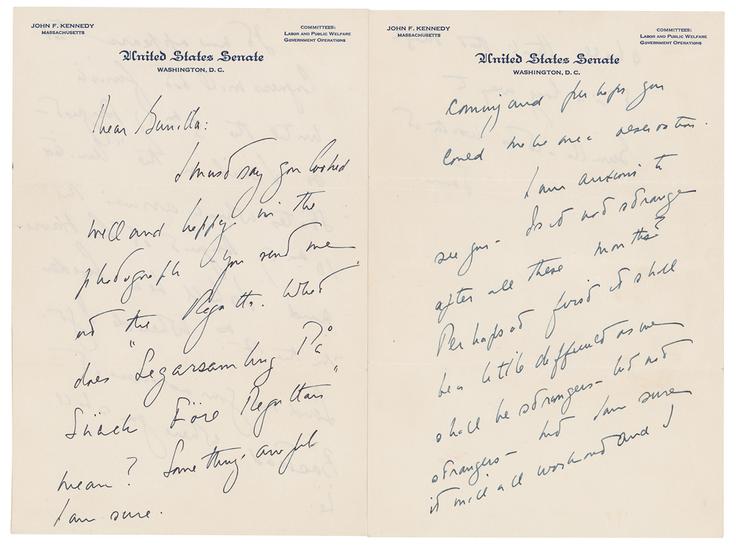 JOHN F. KENNEDY
MASSACHUSETTS
COMMITTEES:
LABOR AND PUBLIC WELFARE
GOVERNMENT OPERATIONS
United States Senate
WASHINGTON, D. C.
Dear Gunilla:
I must say you looked
well and happy in the
photograph you send me
at the Regatta. What
does "Segarsamling På
Snäck Före Regattan"
mean? Something awful
I am sure.
JOHN F. KENNEDY
MASSACHUSETTS
COMMITTEES:
LABOR AND PUBLIC WELFARE
GOVERNMENT OPERATIONS
United States Senate
WASHINGTON, D. C.
coming and perhaps you
could make me a reservation.
I am anxious to
see you - Is it not strange
after all these months?
Perhaps at first it shall
be a little difficult as we
shall be strangers - but not
strangers - but I am sure
it will all work and I